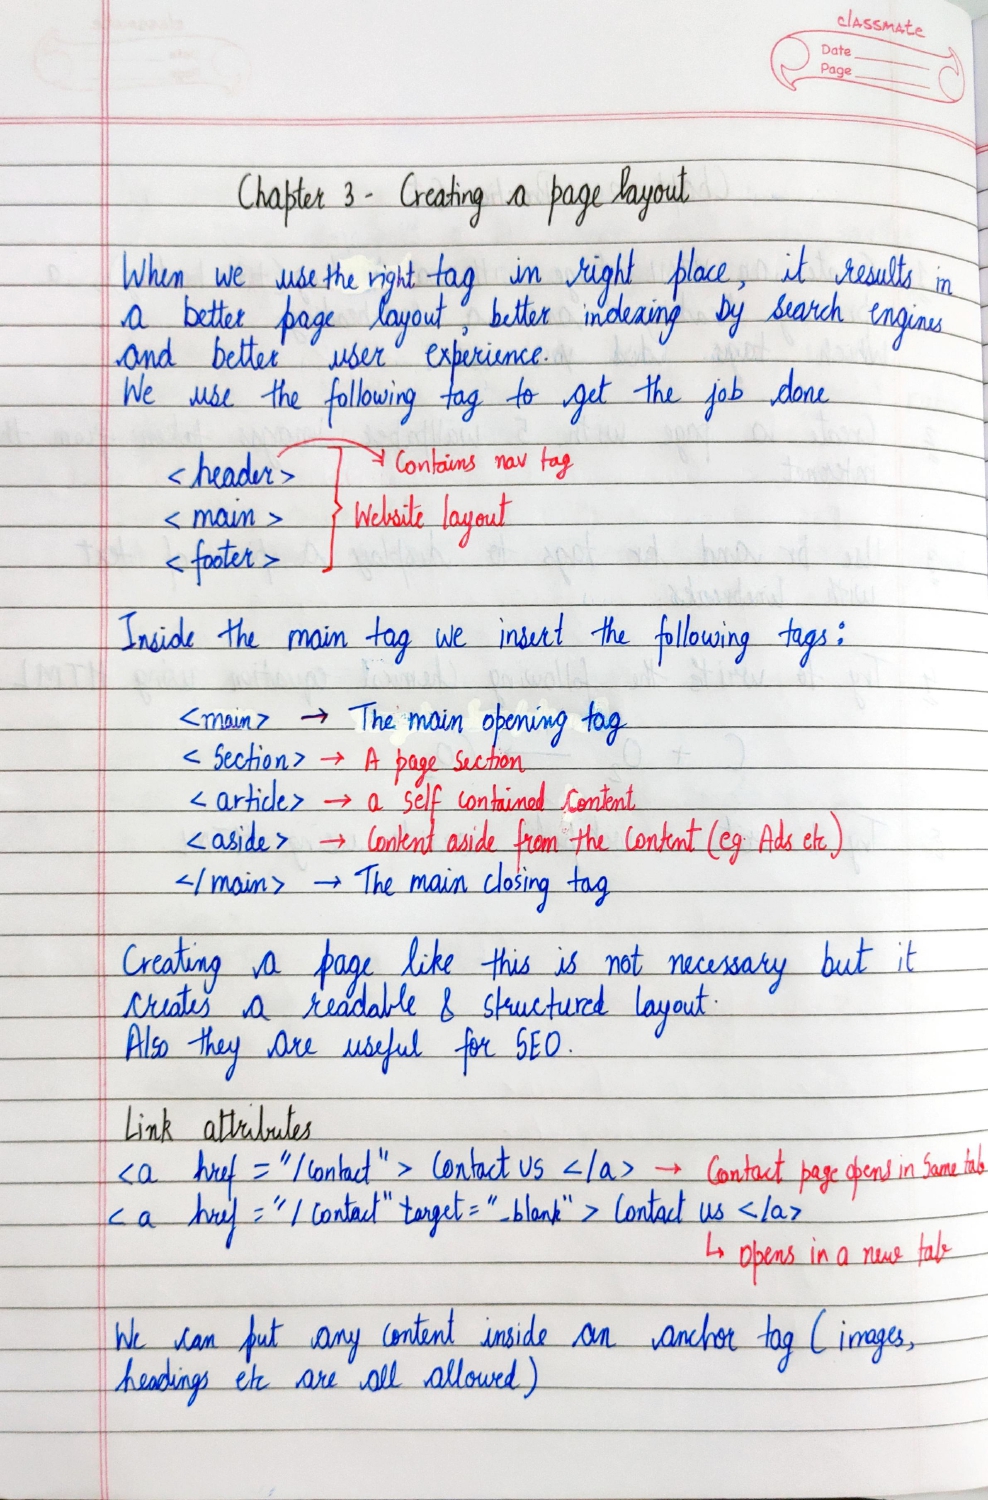 classmate
Date
Page
Chapter 3 - Creating a page layout
When we use the right tag in right place, it results in
a better page layout, better indexing by search engines
and better user experience.
We use the following tag to get the job done
<header> → Contains nav tag
<main> } Website layout
<footer>
Inside the main tag we insert the following tags:
<main> → The main opening tag
<Section> → A page section
<article> → a self contained content
<aside> → Content aside from the content (eg. Ads etc)
</main> → The main closing tag
Creating a page like this is not necessary but it
creates a readable & structured layout.
Also they are useful for SEO.
Link attributes
<a href = "/contact"> Contact us </a> → Contact page opens in same tab
<a href = "/contact" target = "_blank"> Contact us </a>
↳ opens in a new tab
We can put any content inside an anchor tag (images,
headings etc are all allowed)